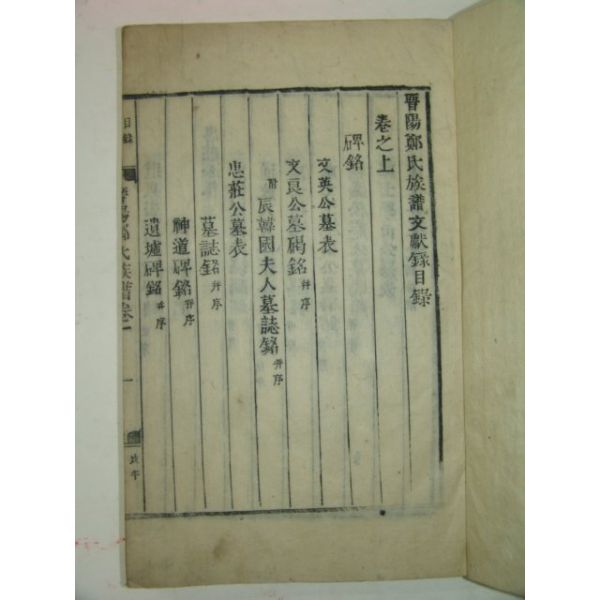 晋陽鄭氏族譜文獻錄目錄
卷之上
碑銘
文英公墓表
文良公墓碣銘 并序
附 辰韓國夫人墓誌銘 并序
忠莊公墓表
墓誌銘 并序
神道碑銘 并序
遺墟碑銘 并序
目錄
晋陽鄭氏族譜卷一
一